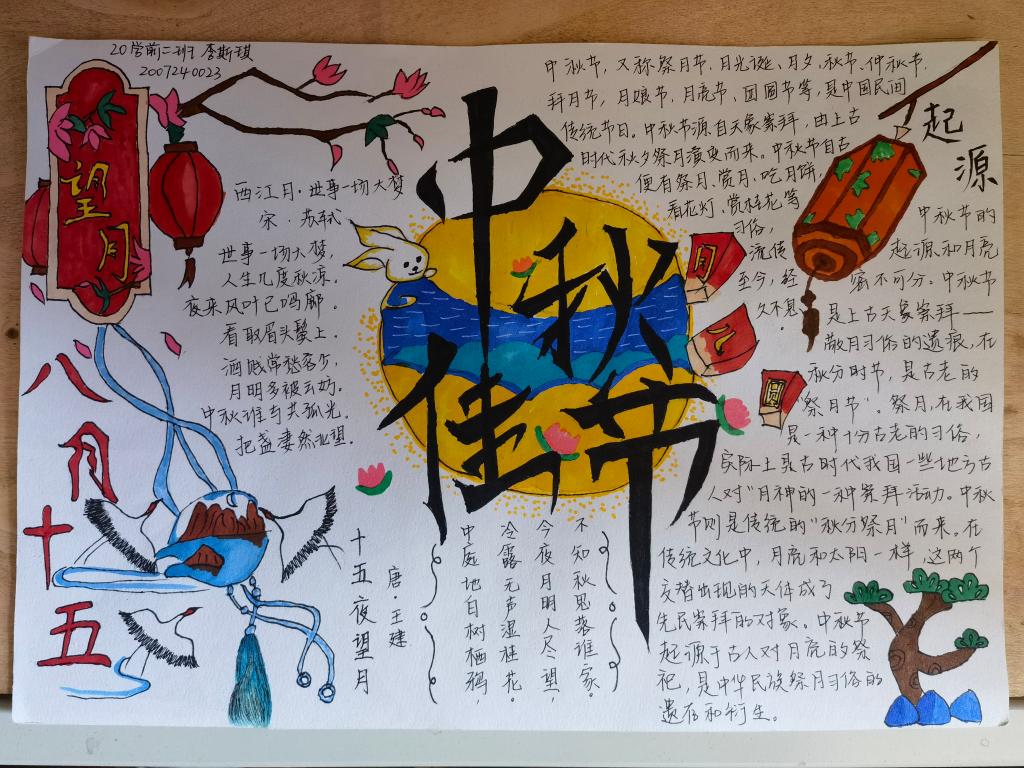 20学前二班 李斯琪
2007240023
望月
八月十五
西江月·世事一场大梦
宋·苏轼
世事一场大梦,
人生几度秋凉.
夜来风叶已鸣廊.
看取眉头鬓上.
酒贱常愁客少,
月明多被云妨.
中秋谁与共孤光.
把盏凄然北望.
中秋佳节
月
圆
十五夜望月
唐·王建
中庭地白树栖鸦,
冷露无声湿桂花.
今夜月明人尽望,
不知秋思落谁家.
起源
中秋节,又称祭月节、月光诞、月夕、秋节、仲秋节、
拜月节、月娘节、月亮节、团圆节等,是中国民间
传统节日。中秋节源自天象崇拜,由上古
时代秋夕祭月演变而来。中秋节自古
便有祭月、赏月、吃月饼,
看花灯、赏桂花等
习俗,
流传
至今,经
久不息.
中秋节的
起源和月亮
密不可分。中秋节
是上古天象崇拜——
敬月习俗的遗痕,在
秋分时节,是古老的
"祭月节"。祭月,在我国
是一种十分古老的习俗,
实际上是古时代我国一些地方古
人对"月神的一种崇拜活动。中秋
节则是传统的"秋分祭月"而来。在
传统文化中,月亮和太阳一样,这两个
交替出现的天体成了
先民崇拜的对象。中秋节
起源于古人对月亮的祭
祀,是中华民族祭月习俗的
遗存和衍生。